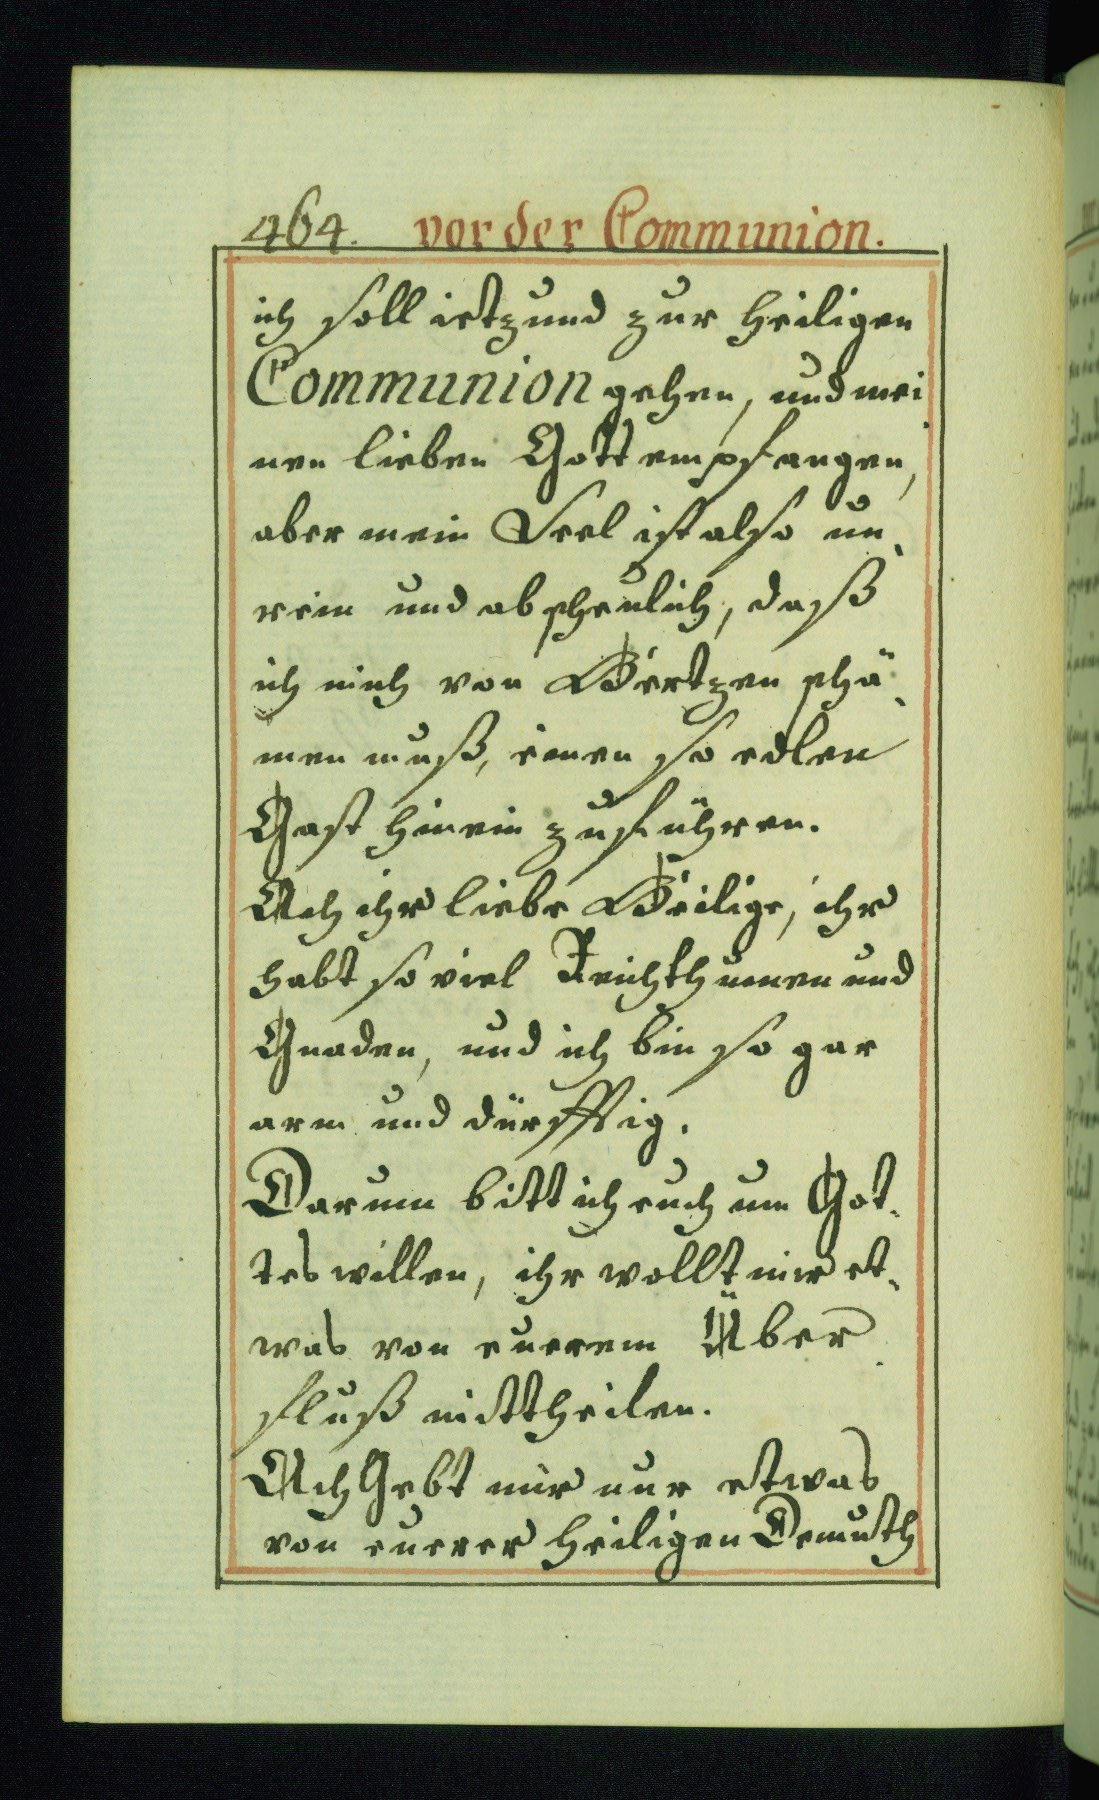 464. vor der Communion.
ich soll ietzund zur heiligen
Communion gehen, und mei
nen lieben Gott empfangen,
aber mein Seel ist also un-
rein und abscheulich, daß
ich mich von Hertzen schä-
men muß, einen so edlen
Gast hinein zuführen.
Ach ihr liebe Heilige, ihr
habt so viel Reichthumen und
Gnaden, und ich bin so gar
arm und dürfftig.
Darum bitt ich euch um Got-
tes willen, ihr wollt mir et-
was von euerem Über-
fluß mittheilen.
Ach Gebt mir nur etwas
von euerer heiligen Demuth